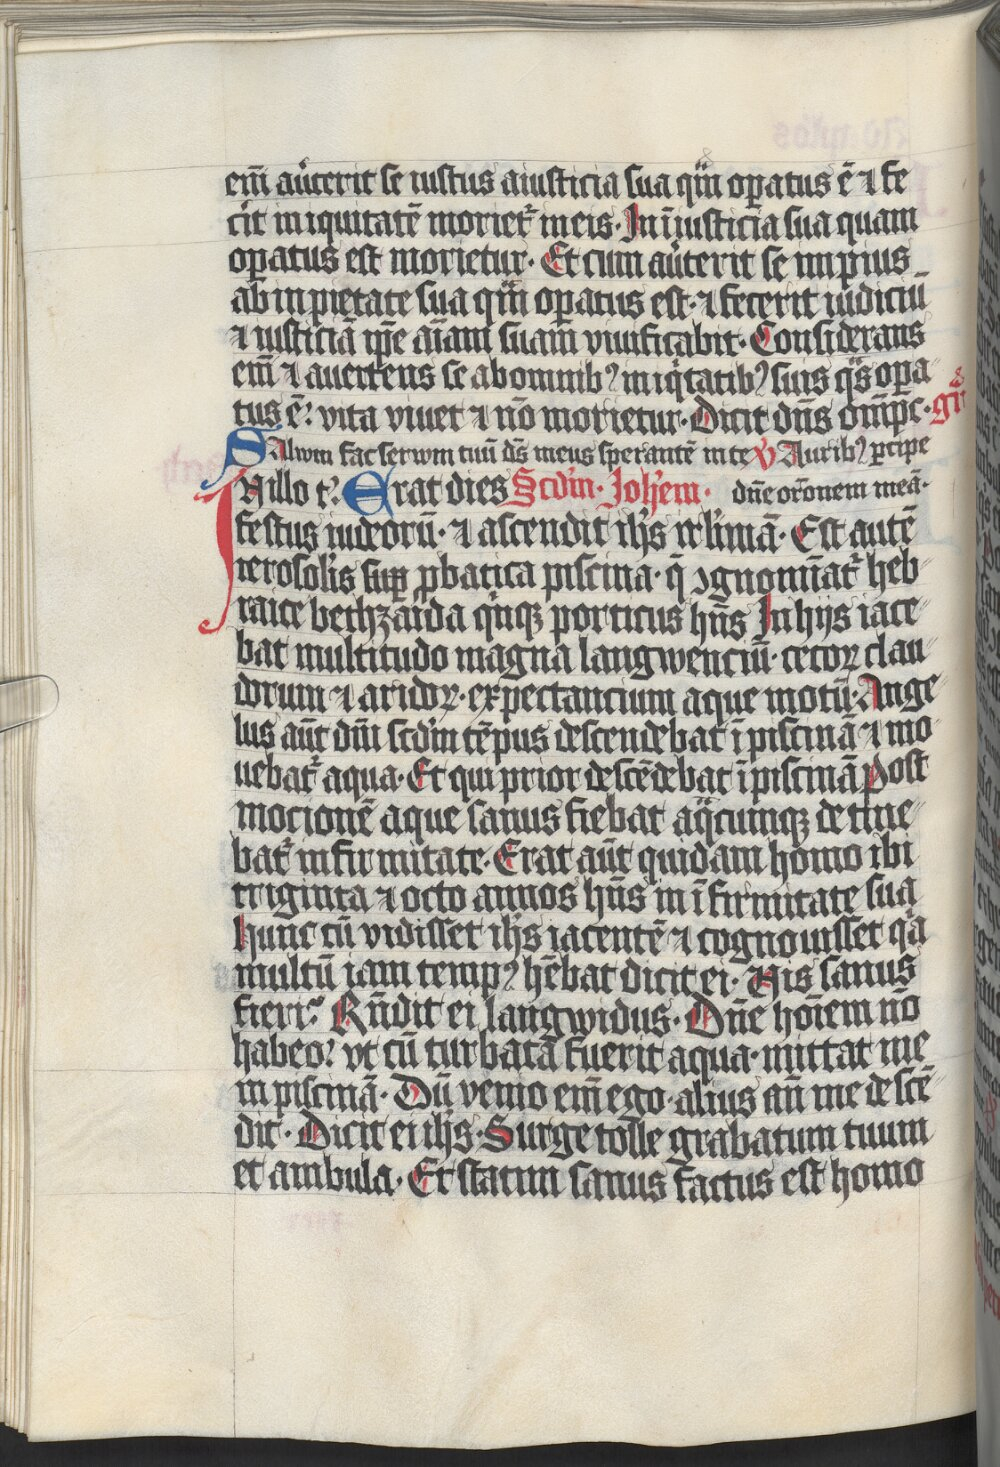 em̄ au̾terit se iustus aiusticia sua qm̄ op̱atus ē ⁊ fe
c̾it iniquitatē moriet᷑ in eis. In iniusticia sua quam
op̱atus est morietur. Et cum au̾terit se impius
ab inpietate sua qm̄ op̱atus est. ⁊ fecerit iudiciū
⁊ iusticiā ip̄e aīam suam viuificabit. Considerans
em̄ ⁊ auertens se ab omnibꝰ iniq̾tatibꝰ suis qͣs opa
tus ē: vita viuet ⁊ nō morietur. Dicit dn̄s om̄ps. gͬ
Alwm fac serwm tuū ds̄ meus sperantē in te V Auribꝰ ꝑcipe
In illo t̾. Erat dies Scd̾m. Joh̄em. dn̄e or̄onem meā.
festus iudeorū. ⁊ ascendit ih̄s ir̄limā. Est autē
ierosol̾is suꝑ ꝓbatica piscina. q̄ ꝯgnomīat᷑ heb
raice bethzaida q̾nqꝫ porticus hn̄s In hijs iace
bat multitudo magna langwenciū. cecoꝝ clau
dorum ⁊ aridoꝝ. expectancium aque motū. Ange
lus aūt dn̄i scd̾m tēpus descendebat ī piscinā ⁊ mo
uebat᷑ aqua. Et qui prior descēdebat ī piscinā post
mocionē aque sanus fiebat aqͣcumqꝫ detine
bat᷑ infirmitate. Erat aūt quidam homo ibi
triginta ⁊ octo annos hn̄s in īfirmitate sua
hunc cū vidisset ih̄s iacentē ⁊ cognouisset qͣa
multū iam tempꝰ hēbat dicit ei. Vis sanus
fieri? Rn̄dit ei langwidus. Dn̄e hoīem nō
habeo: vt cū turbata fuerit aqua. mittat me
in piscinā. Dū venio em̄ ego. alius an̄ me descē
dit. Dicit ei ih̄s. Surge tolle grabatum tuum
et ambula. Et statim sanus factus est homo